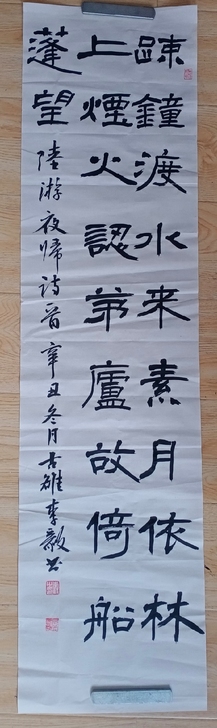 踈鐘渡水来素月依林
上煙火認茅廬故倚船
蓬望
陸游夜歸诗一首辛丑冬月古雒李毅书